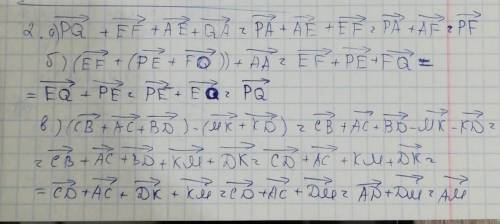 2. а) PQ + EF + AE + QA = PA + AE + EF = PA + AF = PF
б) (EF + (PE + FQ)) + AA = EF + PE + FQ =
= EQ + PE = PE + EQ = PQ
в) (CB + AC + BD) - (MK + KD) = CB + AC + BD - MK - KD =
= CB + AC + BD + KM + DK = CD + AC + KM + DK =
= CD + AC + DK + KM = CD + AC + DM = AD + DM = AM